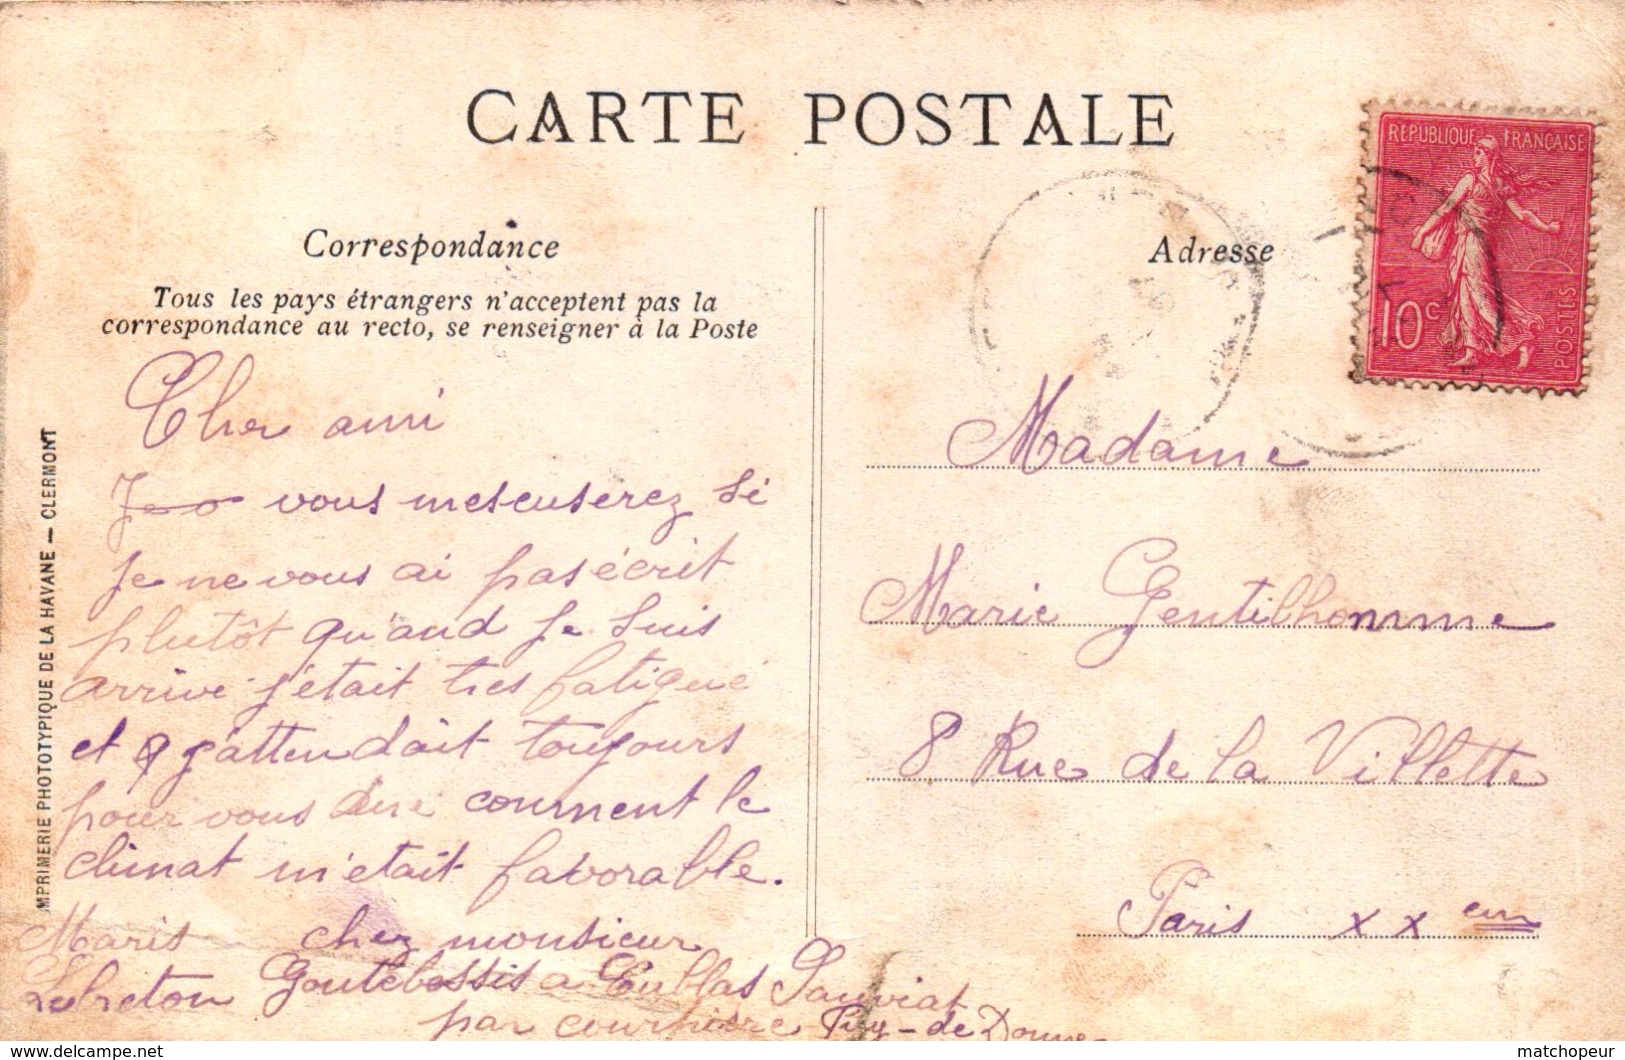 CARTE POSTALE
RÉPUBLIQUE FRANÇAISE
10c
POSTES
Correspondance
Tous les pays étrangers n'acceptent pas la
correspondance au recto, se renseigner à la Poste
Cher ami
vous mescuserez si
je ne vous ai pas écrit
plutôt qu'and je suis
arrive j'était tres fatigué
et j'attendait toujours
pour vous dire comment le
climat m'était favorable.
Maris chez monsieur
Lebreton Goutebessis a Cublas Sauviat
par courpierre Puy-de Dome
IMPRIMERIE PHOTOTYPIQUE DE LA HAVANE — CLERMONT
Adresse
Madame
Marie Gentilhomme
8 Rue de la Villette
Paris XX em
delcampe.net
matchopeur